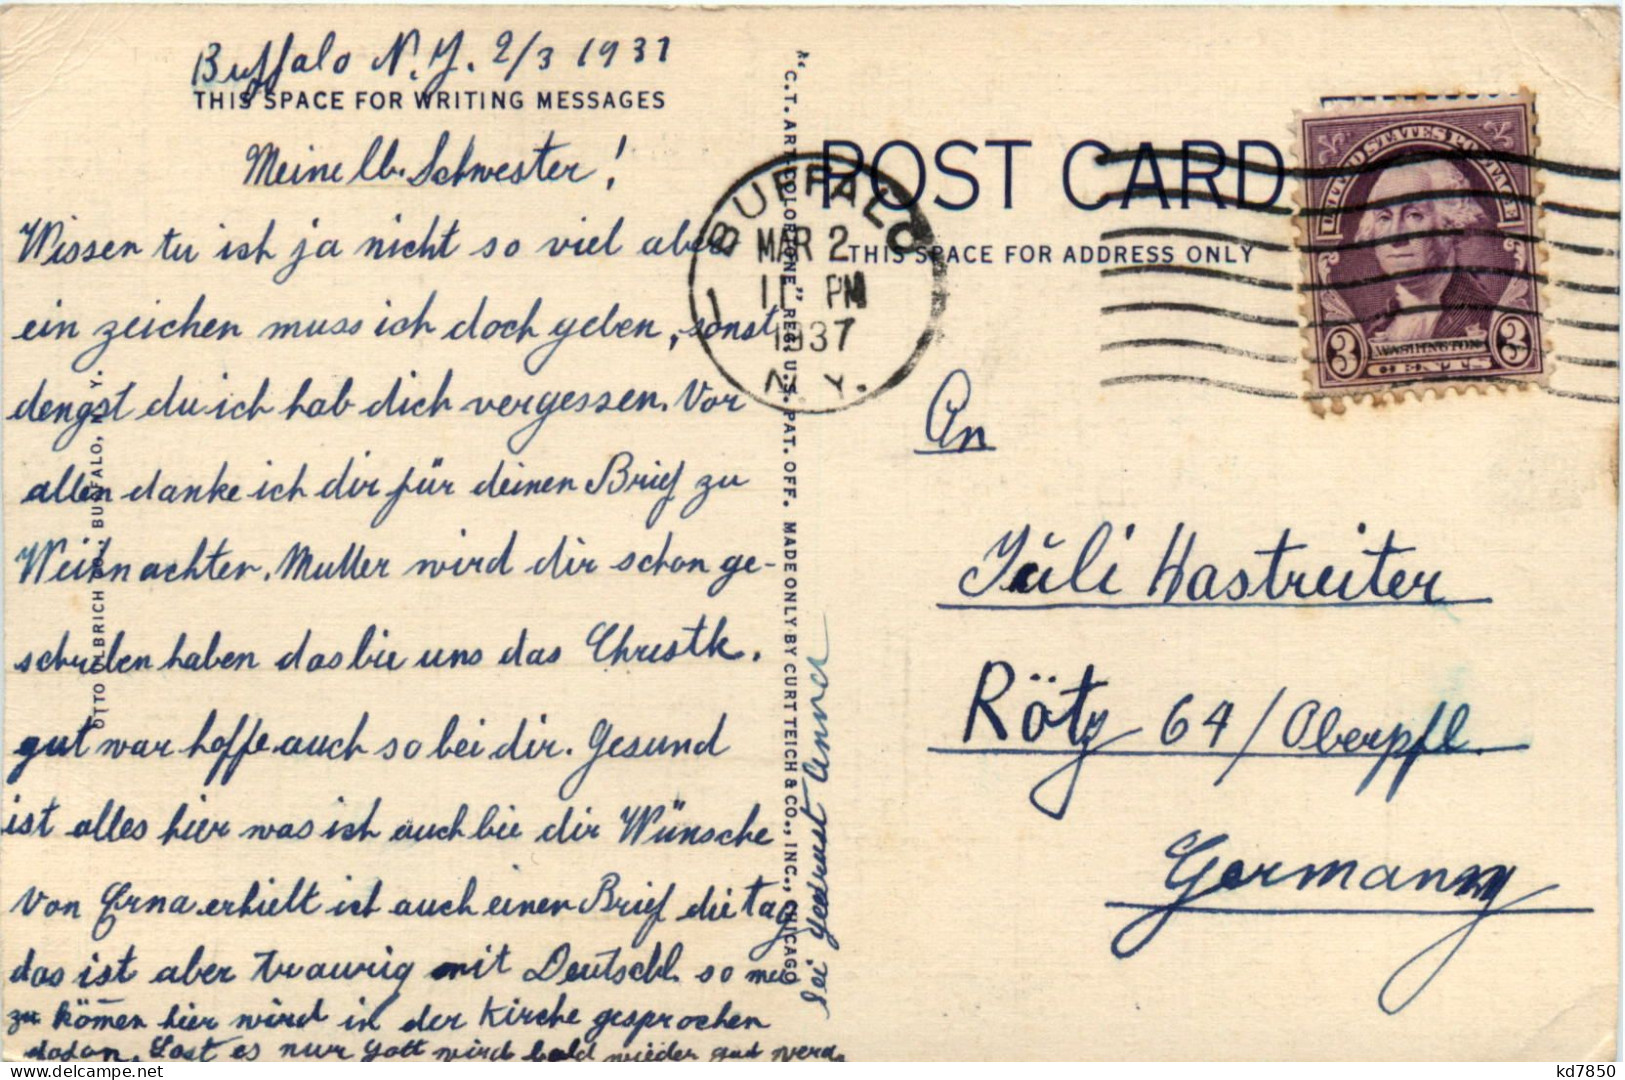 Buffalo N.Y. 2/3 1937
THIS SPACE FOR WRITING MESSAGES
Meine lb. Schwester!
Wissen tu ich ja nicht so viel aber
ein zeichen muss ich doch geben, sonst
dengst du ich hab dich vergessen. Vor
allen danke ich dir für deinen Brief zu
Weihnachten. Mutter wird dir schon ge-
schrieben haben das bie uns das Christk.
gut war hoffe auch so bei dir. Gesund
ist alles hier was ich auch bie dir Wünsche
Von Erna erhielt ich auch einen Brief die tag
das ist aber traurig mit Deutschl. so
zu kom̅en hier wird in der Kirche gesprochen
davon. Last es nur Gott wird bald wieder gut werd.
sei gedrust Anna
OTTO ULBRICH CO. BUFFALO, N. Y.
"C.T. ART-COLORTONE" REG. U.S. PAT. OFF. MADE ONLY BY CURT TEICH & CO., INC., CHICAGO
POST CARD
THIS SPACE FOR ADDRESS ONLY
BUFFALO
1
MAR 2
11 PM
1937
N. Y.
UNITED STATES POSTAGE
3 WASHINGTON 3
CENTS
An
Juli Hastreiter
Rötz 64/Oberpfl.
Germany
kd7850